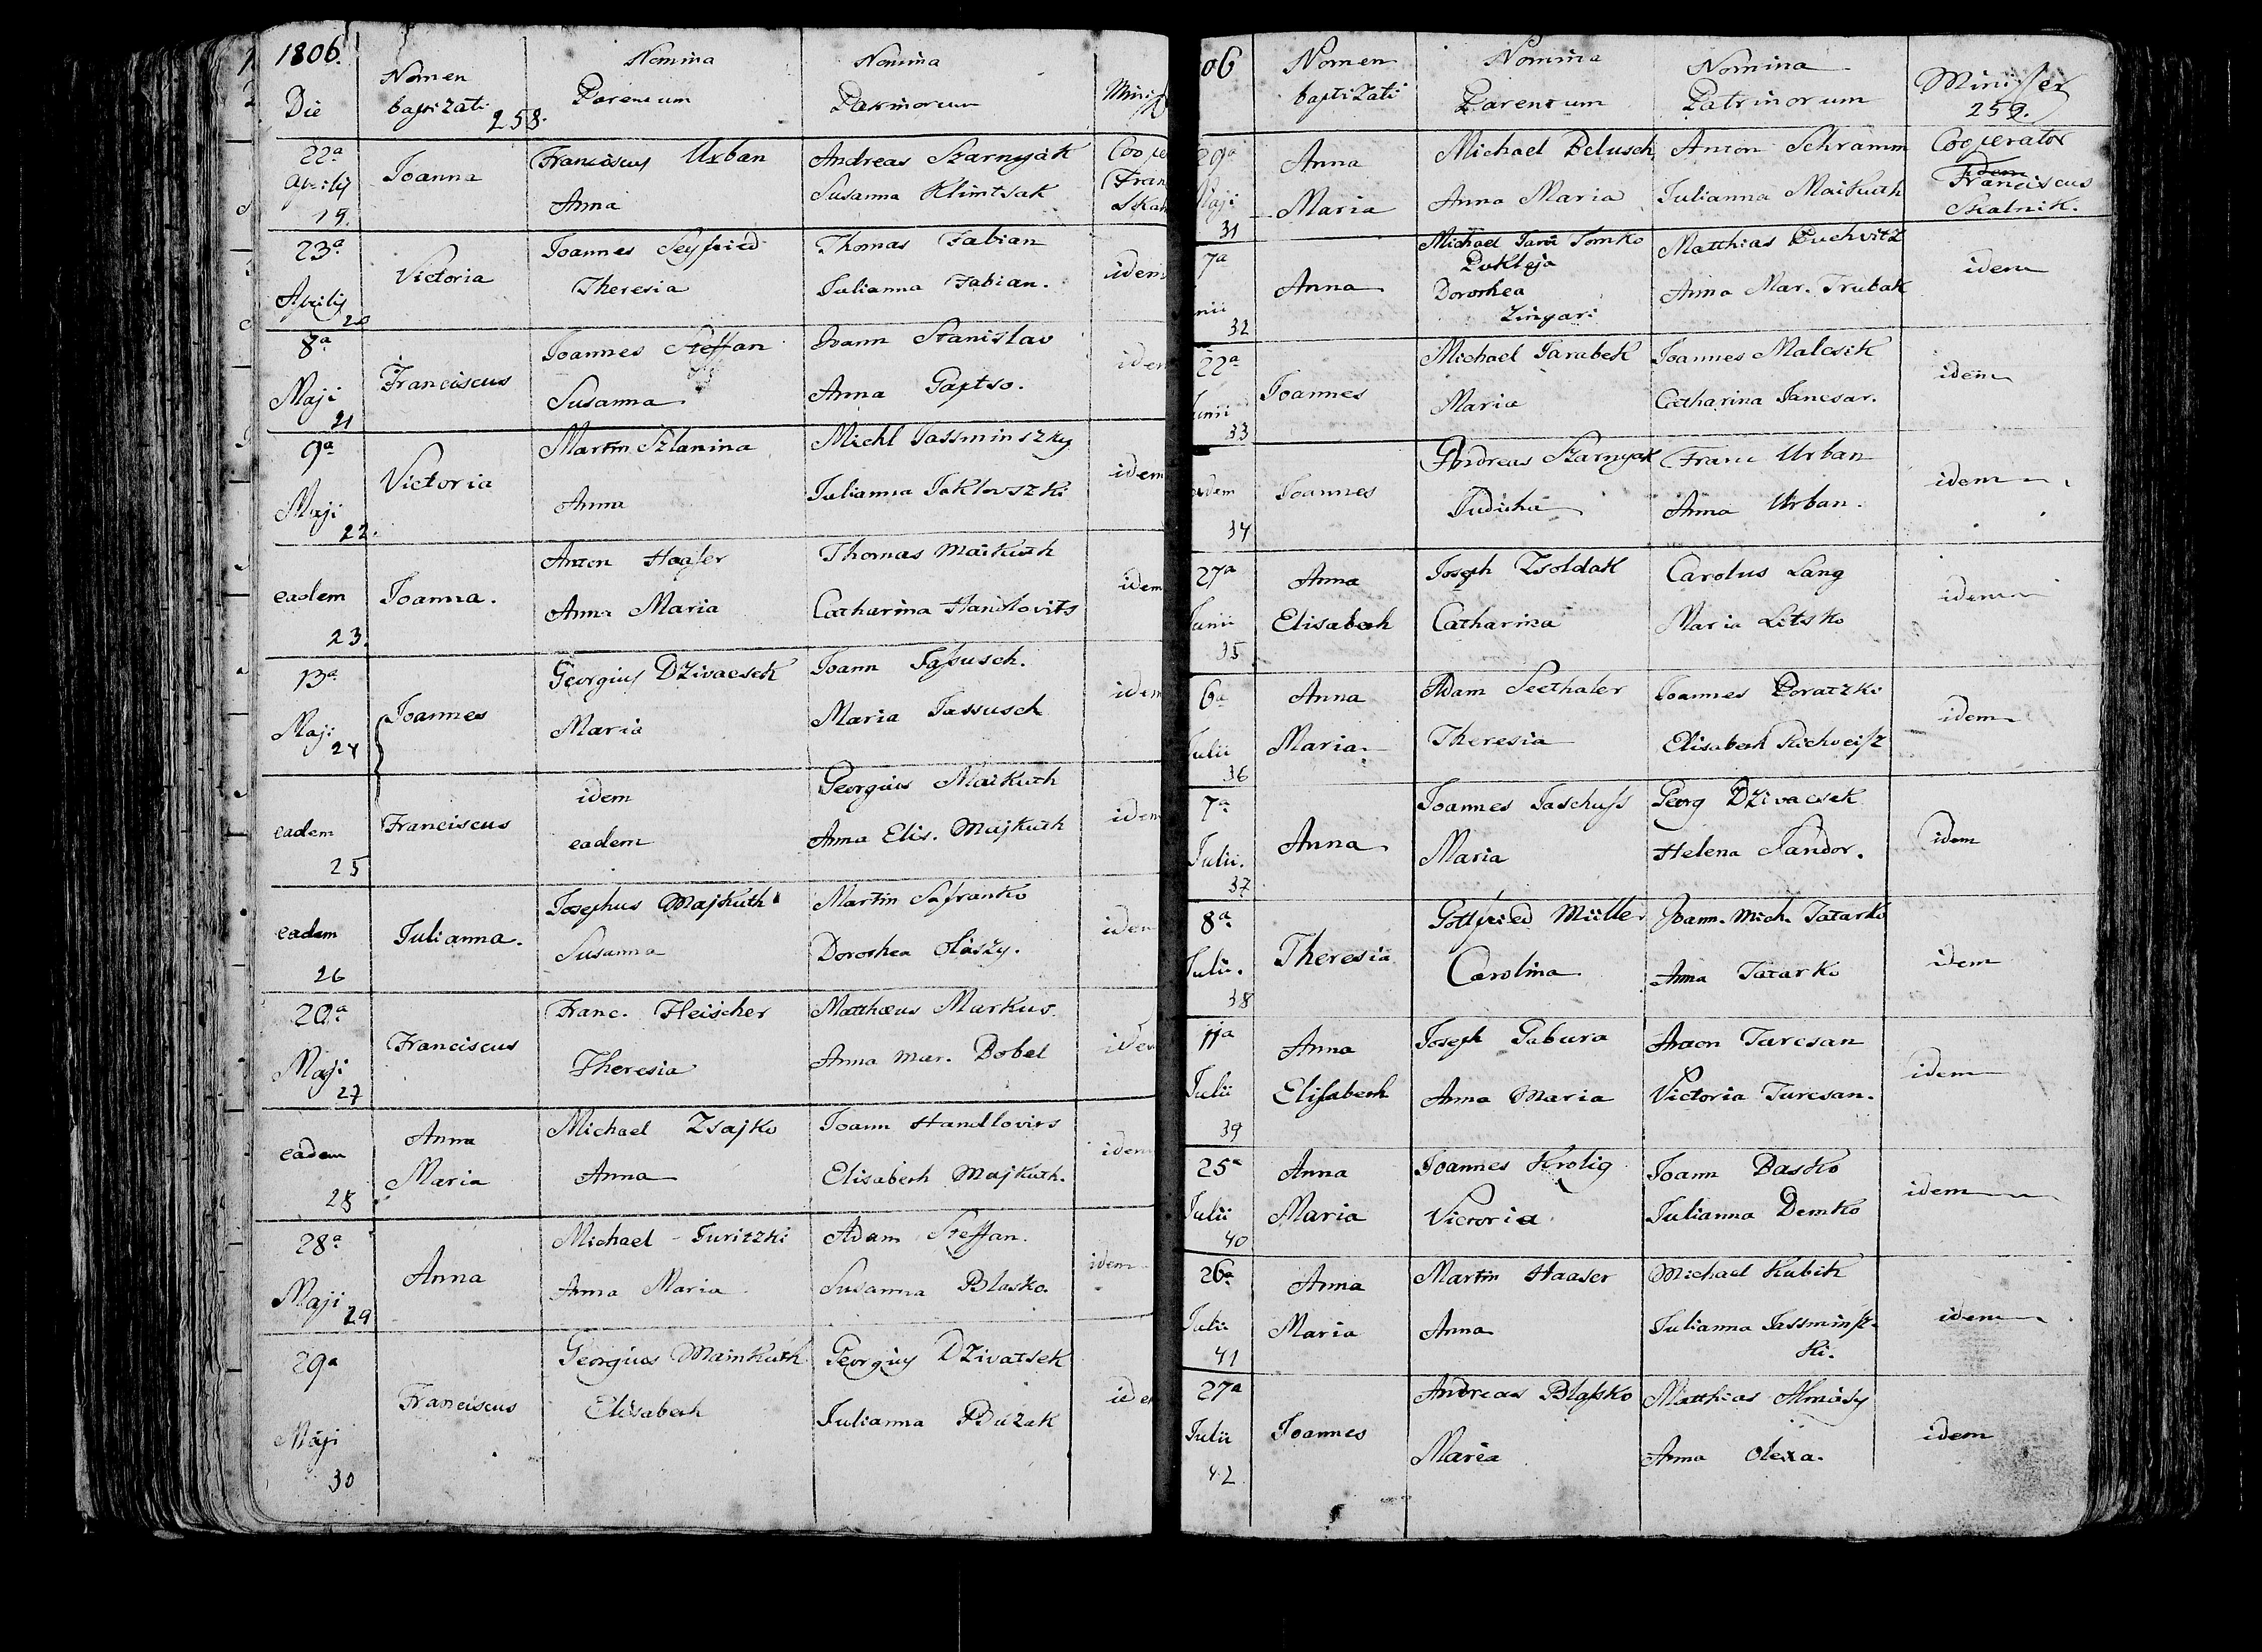 1806.
Die
Nomen
baptizati
258.
Nomina
Parentum
Nomina
Patrinorum
22a
Aprilis
19.
Joanna
Franciscus Urban
Anna
Andreas Szarnyák
Susanna Klimtsak
23a
Aprilis
20
Victoria
Joannes Seyfried
Theresia
Thomas Fabian
Julianna Fabian.
idem
8a
Maji
21
Franciscus
Joannes Steffan
Susanna
Joann Stanislav
Anna
9a
Maji
22.
Victoria
Martin Szlanina
Anna
Michl Jassminszky
Julianna Joklovszki
idem
eadem
23.
Joanna.
Anton
Anna Maria
Thomas Maikuth
Catharina Handlovits
idem
13a
Maji
24
Joannes
Georgius Dzivacsek
Maria
Joann
Maria Jassusch
idem
eadem
25
Franciscus
idem
eadem
Georgius Maikuth
Anna Elis. Majkuth
idem
eadem
26
Julianna.
Josephus Majkuth
Susanna
Martin Safranko
Dorothea Olászy.
20a
Maji
27
Franciscus
Franc. Fleischer
Theresia
Matthæus Markus
Anna Mar. Bobel
eadem
28
Anna
Maria
Michael Zsajko
Anna
Joann Handlovits
Elisabeth Majkuth.
idem
28a
Maji
29
Anna
Michael Juritzki
Anna Maria
Adam Steffan.
Susanna Blasko.
idem
29a
Maji
30
Franciscus
Georgius Mainkuth
Elisabeth
Georgius Dzivatsek
Julianna Buzak
06
Nomen
baptizati
Nomina
Parentum
Nomina
Patrinorum
Minister
259.
29a
Maji
31
Anna
Maria
Michael Belusch
Anna Maria
Anton Schramm
Julianna Maikuth
Cooperator
Franciscus
Skalnik.
7a
32
Anna
Michael Tomko
Dorothea
Zingari
Matthias Buchvitz
Anna Mar. Trubak
idem
22a
Junii
33
Joannes
Michael Jarabek
Maria
Joannes Malcsik
Catharina Jancsar.
idem
34
Joannes
Andreas Szarnyak
Juditha
Franc Urban
Anna Urban.
idem
27a
Junii
35
Anna
Elisabeth
Joseph Zsoldak
Catharina
Carolus Lang
Maria Litsko
idem
6a
Julii
36
Anna
Maria
Adam Seethaler
Theresia
Joannes Poratzki
Elisabeth Richveisz
idem
7a
Julii.
37
Anna
Joannes Jaschuss
Maria
Georg Dzivacsek
Helena Sandor.
idem
8a
Julii.
38
Theresia
Gottfried Müller
Carolina
Joann. Mich. Tatarko
Anna Tatarko
idem
11a
Julii
39
Anna
Elisabeth
Joseph Gabura
Anna Maria
Anton Turcsan
Victoria Turcsan.
idem
25a
Julii
40
Anna
Maria
Joannes Krolig
Victoria
Joann Basko
Julianna Demko
idem
26a
Julii
41
Anna
Maria
Martin Haaser
Anna
Michael Kubik
Julianna Jassminsz-
ki.
idem
27a
Julii
42
Joannes
Andreas Blassko
Maria
Matthias Almásy
Anna Olexa.
idem